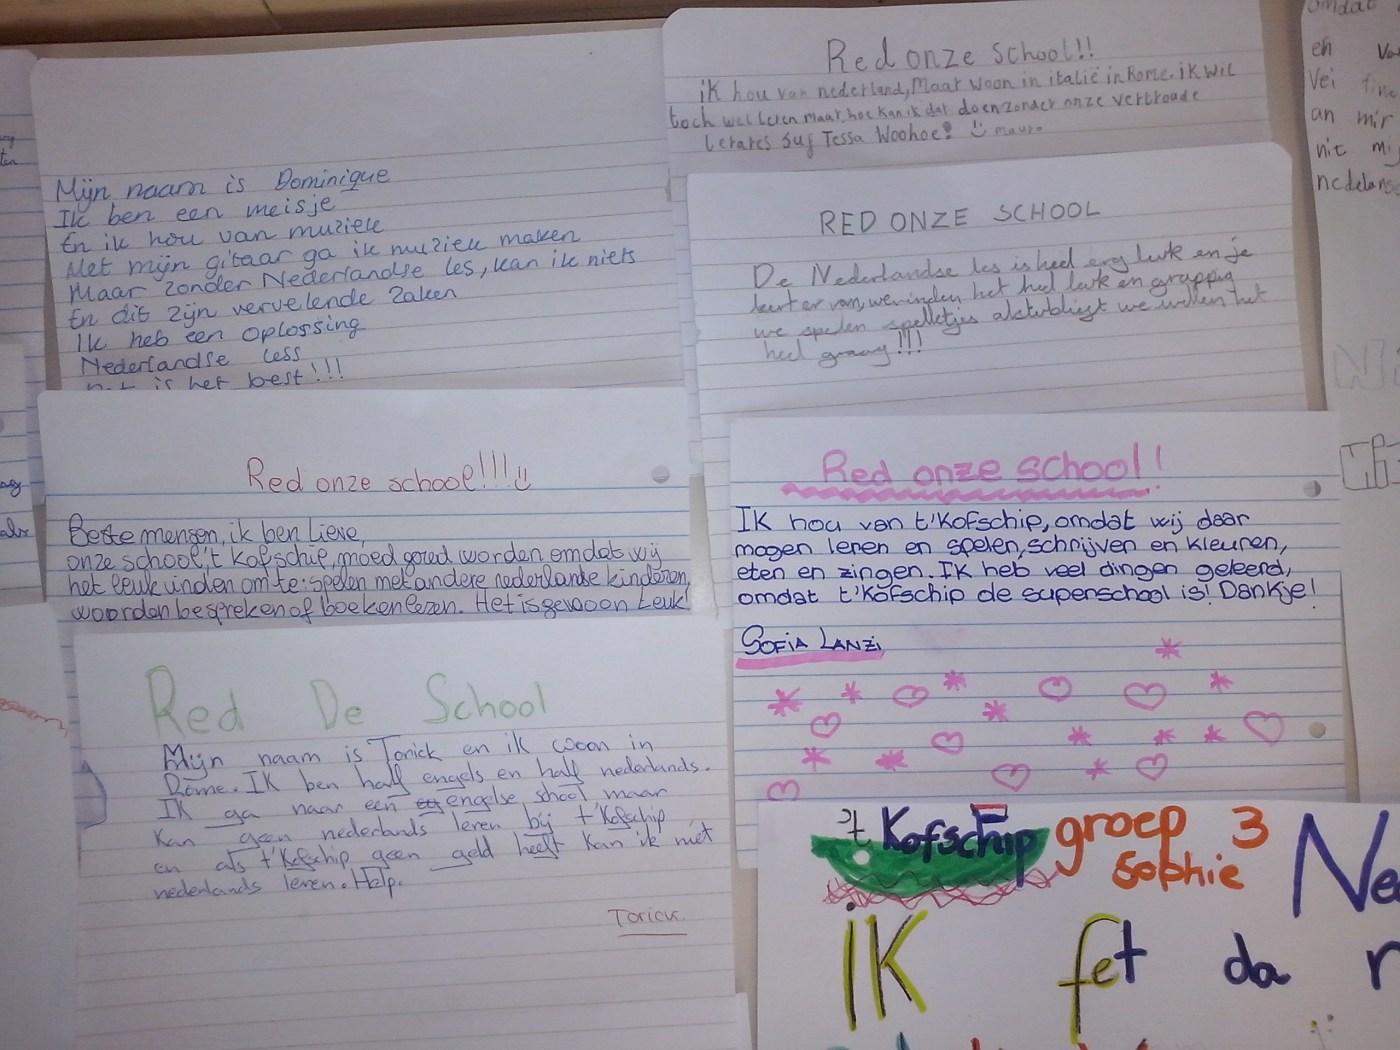 Mijn naam is Dominique
Ik ben een meisje
En ik hou van muziek
Met mijn gitaar ga ik muziek maken
Maar zonder Nederlandse les, kan ik niets
En dit zijn vervelende zaken
Ik heb een oplossing
Nederlandse less
is het best!!!
Red onze school!!
ik hou van nederland, Maar woon in italië in Rome. ik wil
toch wel leren maar, hoe kan ik dat doen zonder onze vertroude
lerares Juf Tessa Woohoe! ☺ mauro
RED ONZE SCHOOL
De Nederlandse les is heel erg leuk en je
leert er van, we vinden het heel leuk en grappig
we spelen spelletjes alstublieft we willen het
heel graag!!!
Red onze school!!! ☺
Beste mensen, ik ben Lieve,
onze school, 't kofschip, moed goed worden omdat wij
het leuk vinden om te: spelen met andere nederlandse kinderen,
woorden bespreken of boeken lezen. Het is gewoon Leuk!
Red onze school!
IK hou van t'Kofschip, omdat wij daar
mogen leren en spelen, schrijven en kleuren,
eten en zingen. IK heb veel dingen geleerd,
omdat t'Kofschip de superschool is! Dankje!
SOFIA LANZI
Red De School
Mijn naam is Torick en ik woon in
Rome. IK ben half engels en half nederlands.
IK ga naar een engelse shool maar
Kan geen nederlands leren bij t'Kofschip
en als t'Kofschip geen geld heeft kan ik niet
nederlands leren. Help.
Torick
't Kofschip groep 3
Sophie
Ne
iK fet da
omdat
en
Vei
an mir
nit